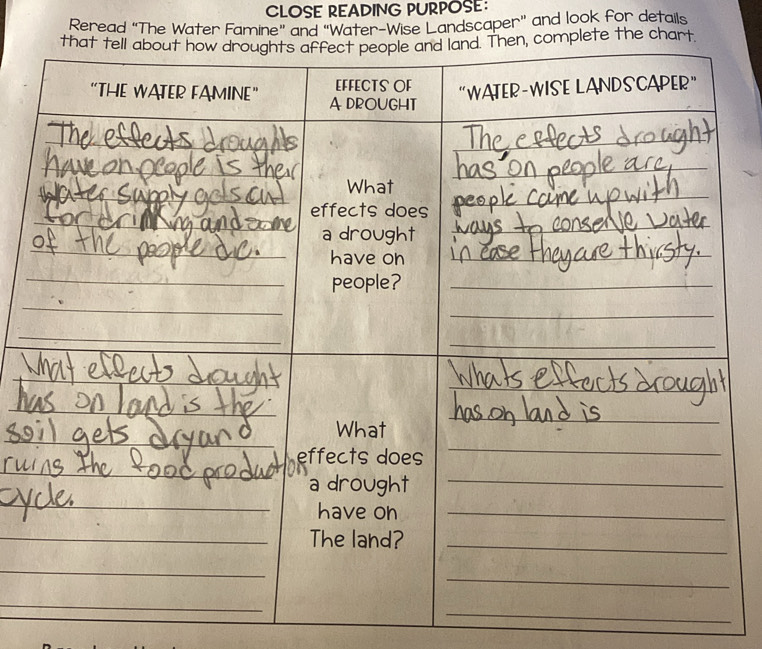 CLOSE READING PURPOSE:
Reread "The Water Famine" and "Water-Wise Landscaper" and look for details
that tell about how droughts affect people and land. Then, complete the chart.
"THE WATER FAMINE"
EFFECTS OF
A DROUGHT
"WATER-WISE LANDSCAPER"
The effects droughts
have on people is their
water supply gets cut
for drinking and some
of the people die.
What
effects does
a drought
have on
people?
The effects drought
has on people are,
people came up with
ways to conserve water
in case they are thirsty.
What effects drought
has on land is the
soil gets dry and
ruins the food production
cycle.
What
effects does
a drought
have on
The land?
Whats effects drought
has on land is